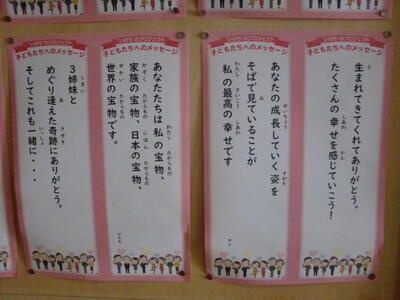 子どもたちへのメッセージ
生まれてきてくれてありがとう。
たくさんの幸せを感じていこう！
子どもたちへのメッセージ
あなたの成長していく姿を
そばで見ていることが
私の最高の幸せです
子どもたちへのメッセージ
あなたたちは私の宝物、
家族の宝物、日本の宝物、
世界の宝物です。
子どもたちへのメッセージ
3姉妹と
めぐり逢えた奇跡にありがとう。
そしてこれも一緒に・・・